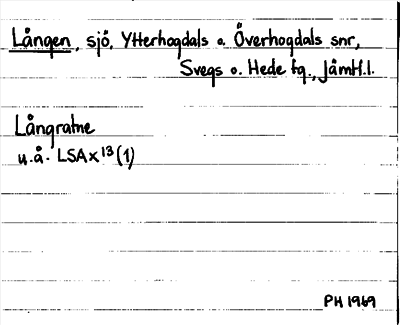 Lången, sjö, Ytterhogdals o. Överhogdals snr,
Svegs o. Hede tg., Jämtl.l.
Långratne
u.å. LSA x¹³ (1)
PH 1969